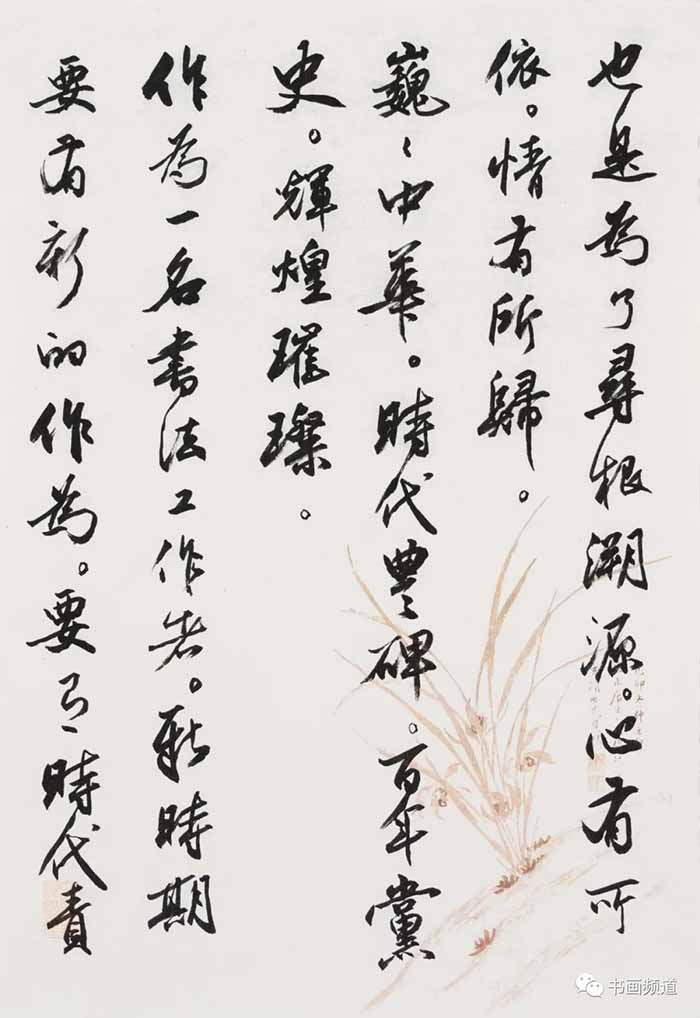 也是為了尋根溯源。心有所
依。情有所歸。
巍〻中華。時代豐碑。百年黨
史。輝煌璀璨。
作為一名書法工作者。新時期
要有新的作為。要有時代責
书画频道